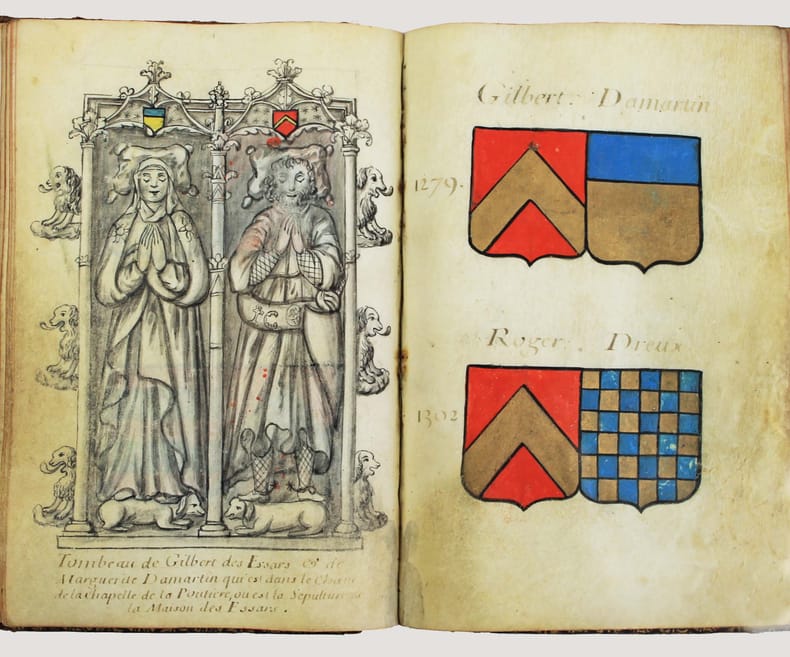 Tombeau de Gilbert des Essars & de
Marguer de Damartin qui est dans le Chœur
de la Chapelle de la Poutiere, ou est la Sepulture
la Maison des Essars.
Gilbert. Damartin
1279.
Roger. Dreux
1302